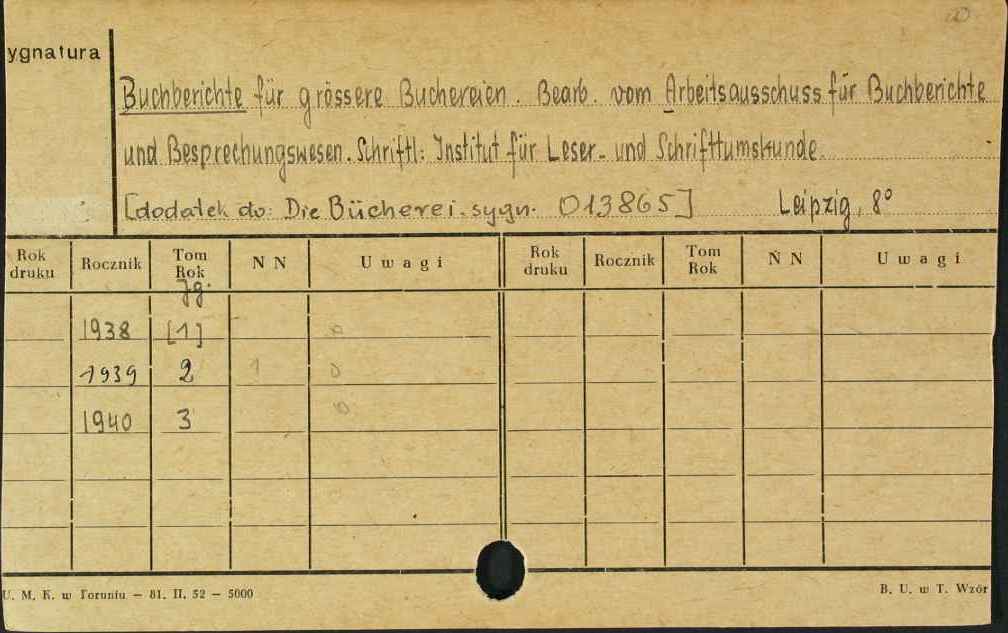 ygnatura
Buchberichte für grössere Buchereien. Bearb. vom Arbeitsausschuss für Buchberichte
und Besprechungswesen. Schriftl: Institut für Leser- und Schrifttumskunde.
[dodatek do: Die Bücherei. sygn. 013865] Leipzig, 8°
Rok druku Rocznik Tom Rok N N Uwagi Rok druku Rocznik Tom Rok N N Uwagi
Jg.
1938 [1]
1939 2 1
1940 3
U. M. K. w Toruniu — 81. II. 52 — 5000 B. U. w T. Wzór